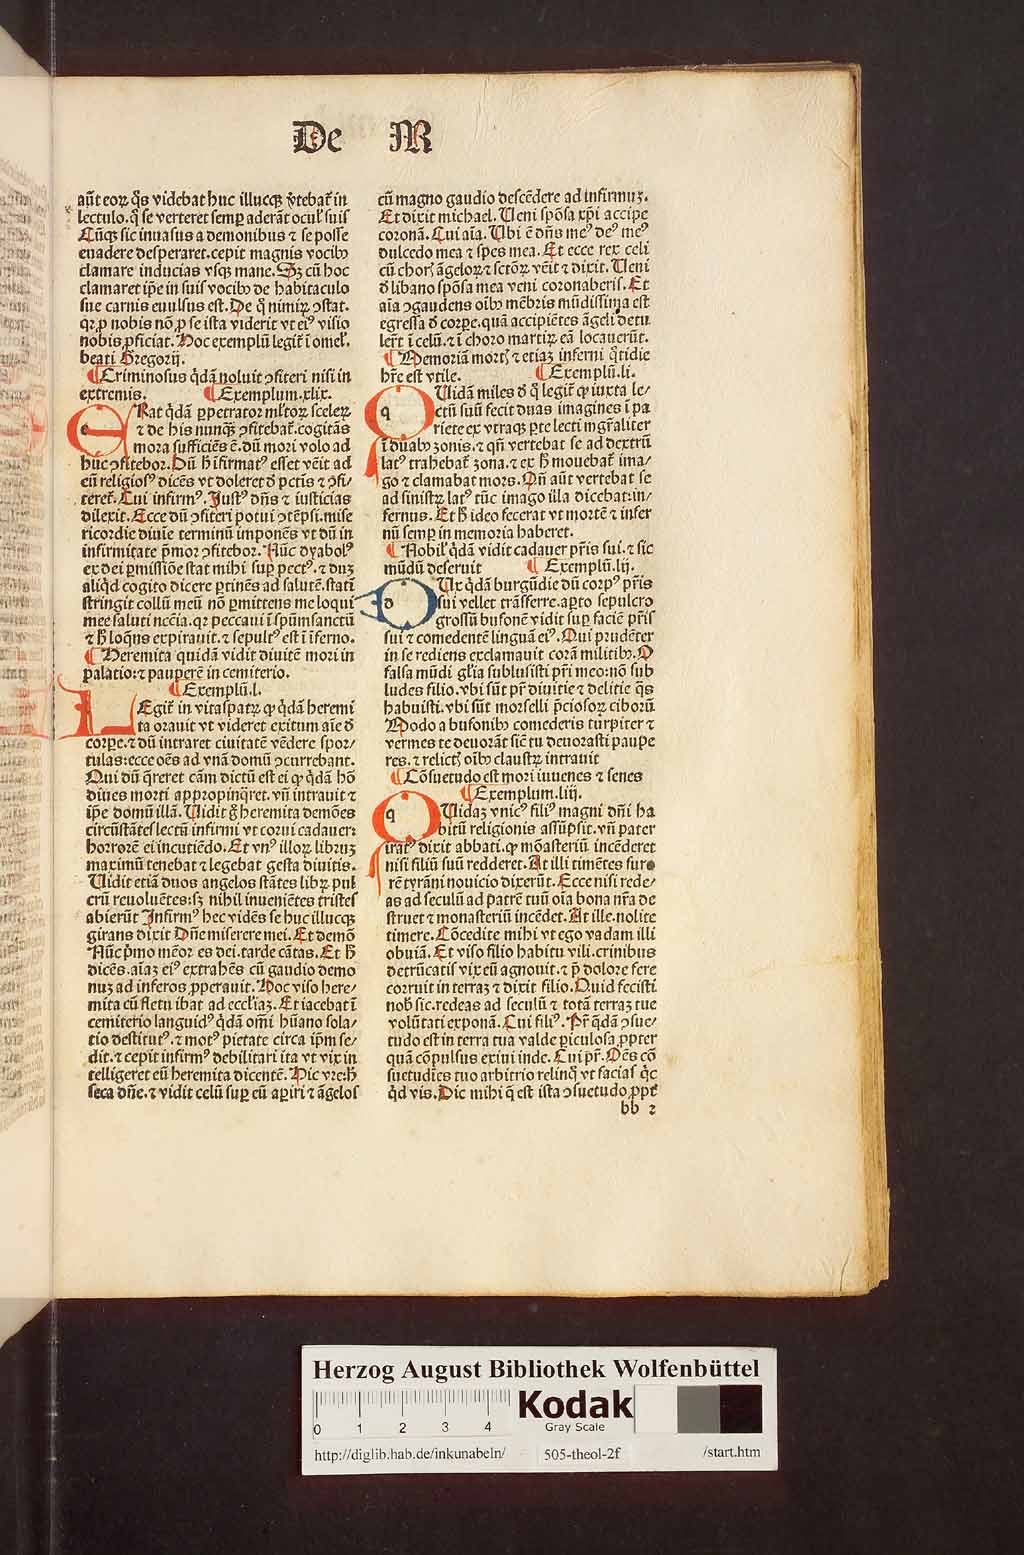 De M
aūt eoꝝ q̄s videbat huc illucqꝫ v̓tebat̄ in
lectulo. q̄ se verteret semꝑ aderāt ocul̓ suis
Cūqꝫ sic inuasus a demonibus ⁊ se posse
euadere desperaret. cepit magnis vocibꝰ
clamare inducias vsqꝫ mane. Sꝫ cū hoc
clamaret ip̄e in suis vocibꝰ de habitaculo
sue carnis euulsus est. De q̄ nimiꝝ ꝯstat.
qꝛ ꝓ nobis nō ꝓ se ista viderit vt eiꝰ visio
nobis ꝓficiat. Hoc exemplū legit̄ ī omel̓.
beati Gregorij.
¶ Criminosus q̄dā noluit ꝯfiteri nisi in
extremis. ¶ Exemplum. xlix.
ERat q̄dā ꝑpetrator ml̓toꝝ sceleꝝ
⁊ de his nunqꝫ ꝯfitebat̄. cogitās
mora sufficiēs ē. dū mori volo ad
huc ꝯfitebor. Dū h̄ īfirmatꝰ esset vēit ad
eū religiosꝰ dicēs vt doleret đ pctīs ⁊ ꝯfi⸗
teret̄. Cui infirmꝰ. Justꝰ dn̄s ⁊ iusticias
dilexit. Ecce dū ꝯfiteri potui ꝯtēpsi. mise
ricordie diuīe terminū imponēs vt dū in
infirmitate p̄mor ꝯfitebor. Nūc dyabolꝰ
ex dei ꝑmissiōe stat mihi suꝑ pectꝰ. ⁊ duꝫ
aliq̄d cogito dicere ꝑtinēs ad salutē. statī
stringit collū meū nō ꝑmittens me loqui
mee saluti nccīa. qꝛ peccaui ī spūmsanctū
⁊ h̄ loq̄ns expirauit. ⁊ sepultꝰ est ī īferno.
¶ Heremita quidā vidit diuitē mori in
palatio: ⁊ pauperē in cemiterio.
¶ Exemplū. l.
LEgit̄ in vitaspatꝝ ꝙ q̄dā heremi
ta orauit vt videret exitum aīe đ
corpe. ⁊ dū intraret ciuitatē vēdere spor⸗
tulas: ecce oēs ad vnā domū ꝯcurrebant.
Qui dū q̄reret cām dictū est ei ꝙ q̄dā hō
diues morti appropinq̄ret. vn̄ intrauit ⁊
ip̄e domū illā. Uidit g̊ heremita demōes
circūstātes lectū infirmi vt corui cadauer:
horrorē ei incutiēdo. Et vnꝰ illoꝝ libruꝫ
maximū tenebat ⁊ legebat gesta diuitis.
Uidit etiā duos angelos stātes libꝝ pul
crū reuoluētes: sꝫ nihil inuenientes tristes
abierūt Infirmꝰ hec vidēs se huc illucqꝫ
girans dixit Dn̄e miserere mei. Et demō
Nūc p̄mo mēor es dei. tarde cātas. Et h̄
dicēs. aīaꝫ eiꝰ extrahēs cū gaudio demo
nuꝫ ad inferos ꝓperauit. Hoc viso here⸗
mita cū fletu ibat ad eccl̓iaꝫ. Et iacebat ī
cemiterio languidꝰ q̄dā om̄i hūano sola⸗
tio destitutꝰ. ⁊ motꝰ pietate circa ip̄m se⸗
dit. ⁊ cepit infirmꝰ debilitari ita vt vix in
telligeret eū heremita dicentē. Hic vre: h̄
seca dn̄e. ⁊ vidit celū suꝑ eū aꝑiri ⁊ āgelos
cū magno gaudio descēdere ad infirmuꝫ.
Et dixit michael. Ueni spōsa xp̄i accipe
coronā. Cui aīa. Ubi ē dn̄s meꝰ deꝰ meꝰ
dulcedo mea ⁊ spes mea. Et ecce rex celi
cū chorꝭ āgeloꝝ ⁊ sctōꝝ vēit ⁊ dixit. Ueni
đ libano spōsa mea veni coronaberis. Et
aīa ꝯgaudens oībꝰ mēbris mūdissima est
egressa đ corꝑe. quā accipiētes āgeli detu
lerūt ī celū. ⁊ ī choro martiꝝ eā locauerūt.
¶ Memoriā mortꝭ ⁊ etiaꝫ inferni q̄tidie
hr̄e est vtile. ¶ Exemplū. li.
QUidā miles đ q̄ legit̄ ꝙ iuxta le⸗
ctū suū fecit duas imagines ī pa
riete ex vtraqꝫ ꝑte lecti mgr̄aliter
ī duabꝰ zonis. ⁊ qn̄ vertebat se ad dextrū
latꝰ trahebat̄ zona. ⁊ ex h̄ mouebat̄ ima⸗
go ⁊ clamabat mors. Qn̄ aūt vertebat se
ad sinistꝝ latꝰ tūc imago illa dicebat: in⸗
fernus. Et h̄ ideo fecerat vt mortē ⁊ infer
nū semꝑ in memoria haberet.
¶ Nobil̓ q̄dā vidit cadauer pr̄is sui. ⁊ sic
mūdū deseruit ¶ Exemplū. lij.
DUx q̄dā burgūdie dū corpꝰ pr̄is
sui vellet trāsferre. aꝑto sepulcro
grossū bufonē vidit suꝑ faciē pr̄is
sui ⁊ comedentē linguā eiꝰ. Qui prudēter
in se rediens exclamauit corā militibꝰ. O
falsa mūdi gl̓ia sublusisti pr̄i meo: nō sub
ludes filio. vbi sūt pr̄ diuitie ⁊ delitie q̄s
habuisti. vbi sūt morselli p̄ciosoꝝ ciborū.
Modo a bufonibꝰ comederis turpiter ⁊
vermes te deuorāt sic̄ tu deuorasti paupe
res. ⁊ relictꝭ oībꝰ claustꝝ intrauit
¶ Cōsuetudo est mori iuuenes ⁊ senes
¶ Exemplum. liij.
QUidaꝫ vnicꝰ filiꝰ magni dn̄i ha
bitū religionis assūpsit. vn̄ pater
iratꝰ dixit abbati. ꝙ mōasteriū incēderet
nisi filiū suū redderet. At illi timētes furo
rē tyrāni nouicio dixerūt. Ecce nisi rede⸗
as ad seculū ad patrē tuū oīa bona nr̄a de
struet ⁊ monasteriū incēdet. At ille. nolite
timere. Cōcedite mihi vt ego vadam illi
obuiā. Et viso filio habitu vili. crinibus
detrūcatis vix eū agnouit. ⁊ p̄ dolore fere
corruit in terraꝫ ⁊ dixit filio. Quid fecisti
nob̄ sic. redeas ad seculū ⁊ totā terraꝫ tue
volūtati exponā. Cui filiꝰ. Pr̄ q̄dā ꝯsue⸗
tudo est in terra tua valde ꝑiculosa ꝓpter
quā cōpulsus exiui inde. Cui pr̄. Oēs cō
suetudīes tuo arbitrio relinq̄ vt facias q̄c
q̄d vis. Dic mihi q̄ est ista ꝯsuetudo ꝓpt̄
bb 2
Herzog August Bibliothek Wolfenbüttel
0 1 2 3 4
Kodak
Gray Scale
http://diglib.hab.de/inkunabeln/ 505-theol-2f /start.htm